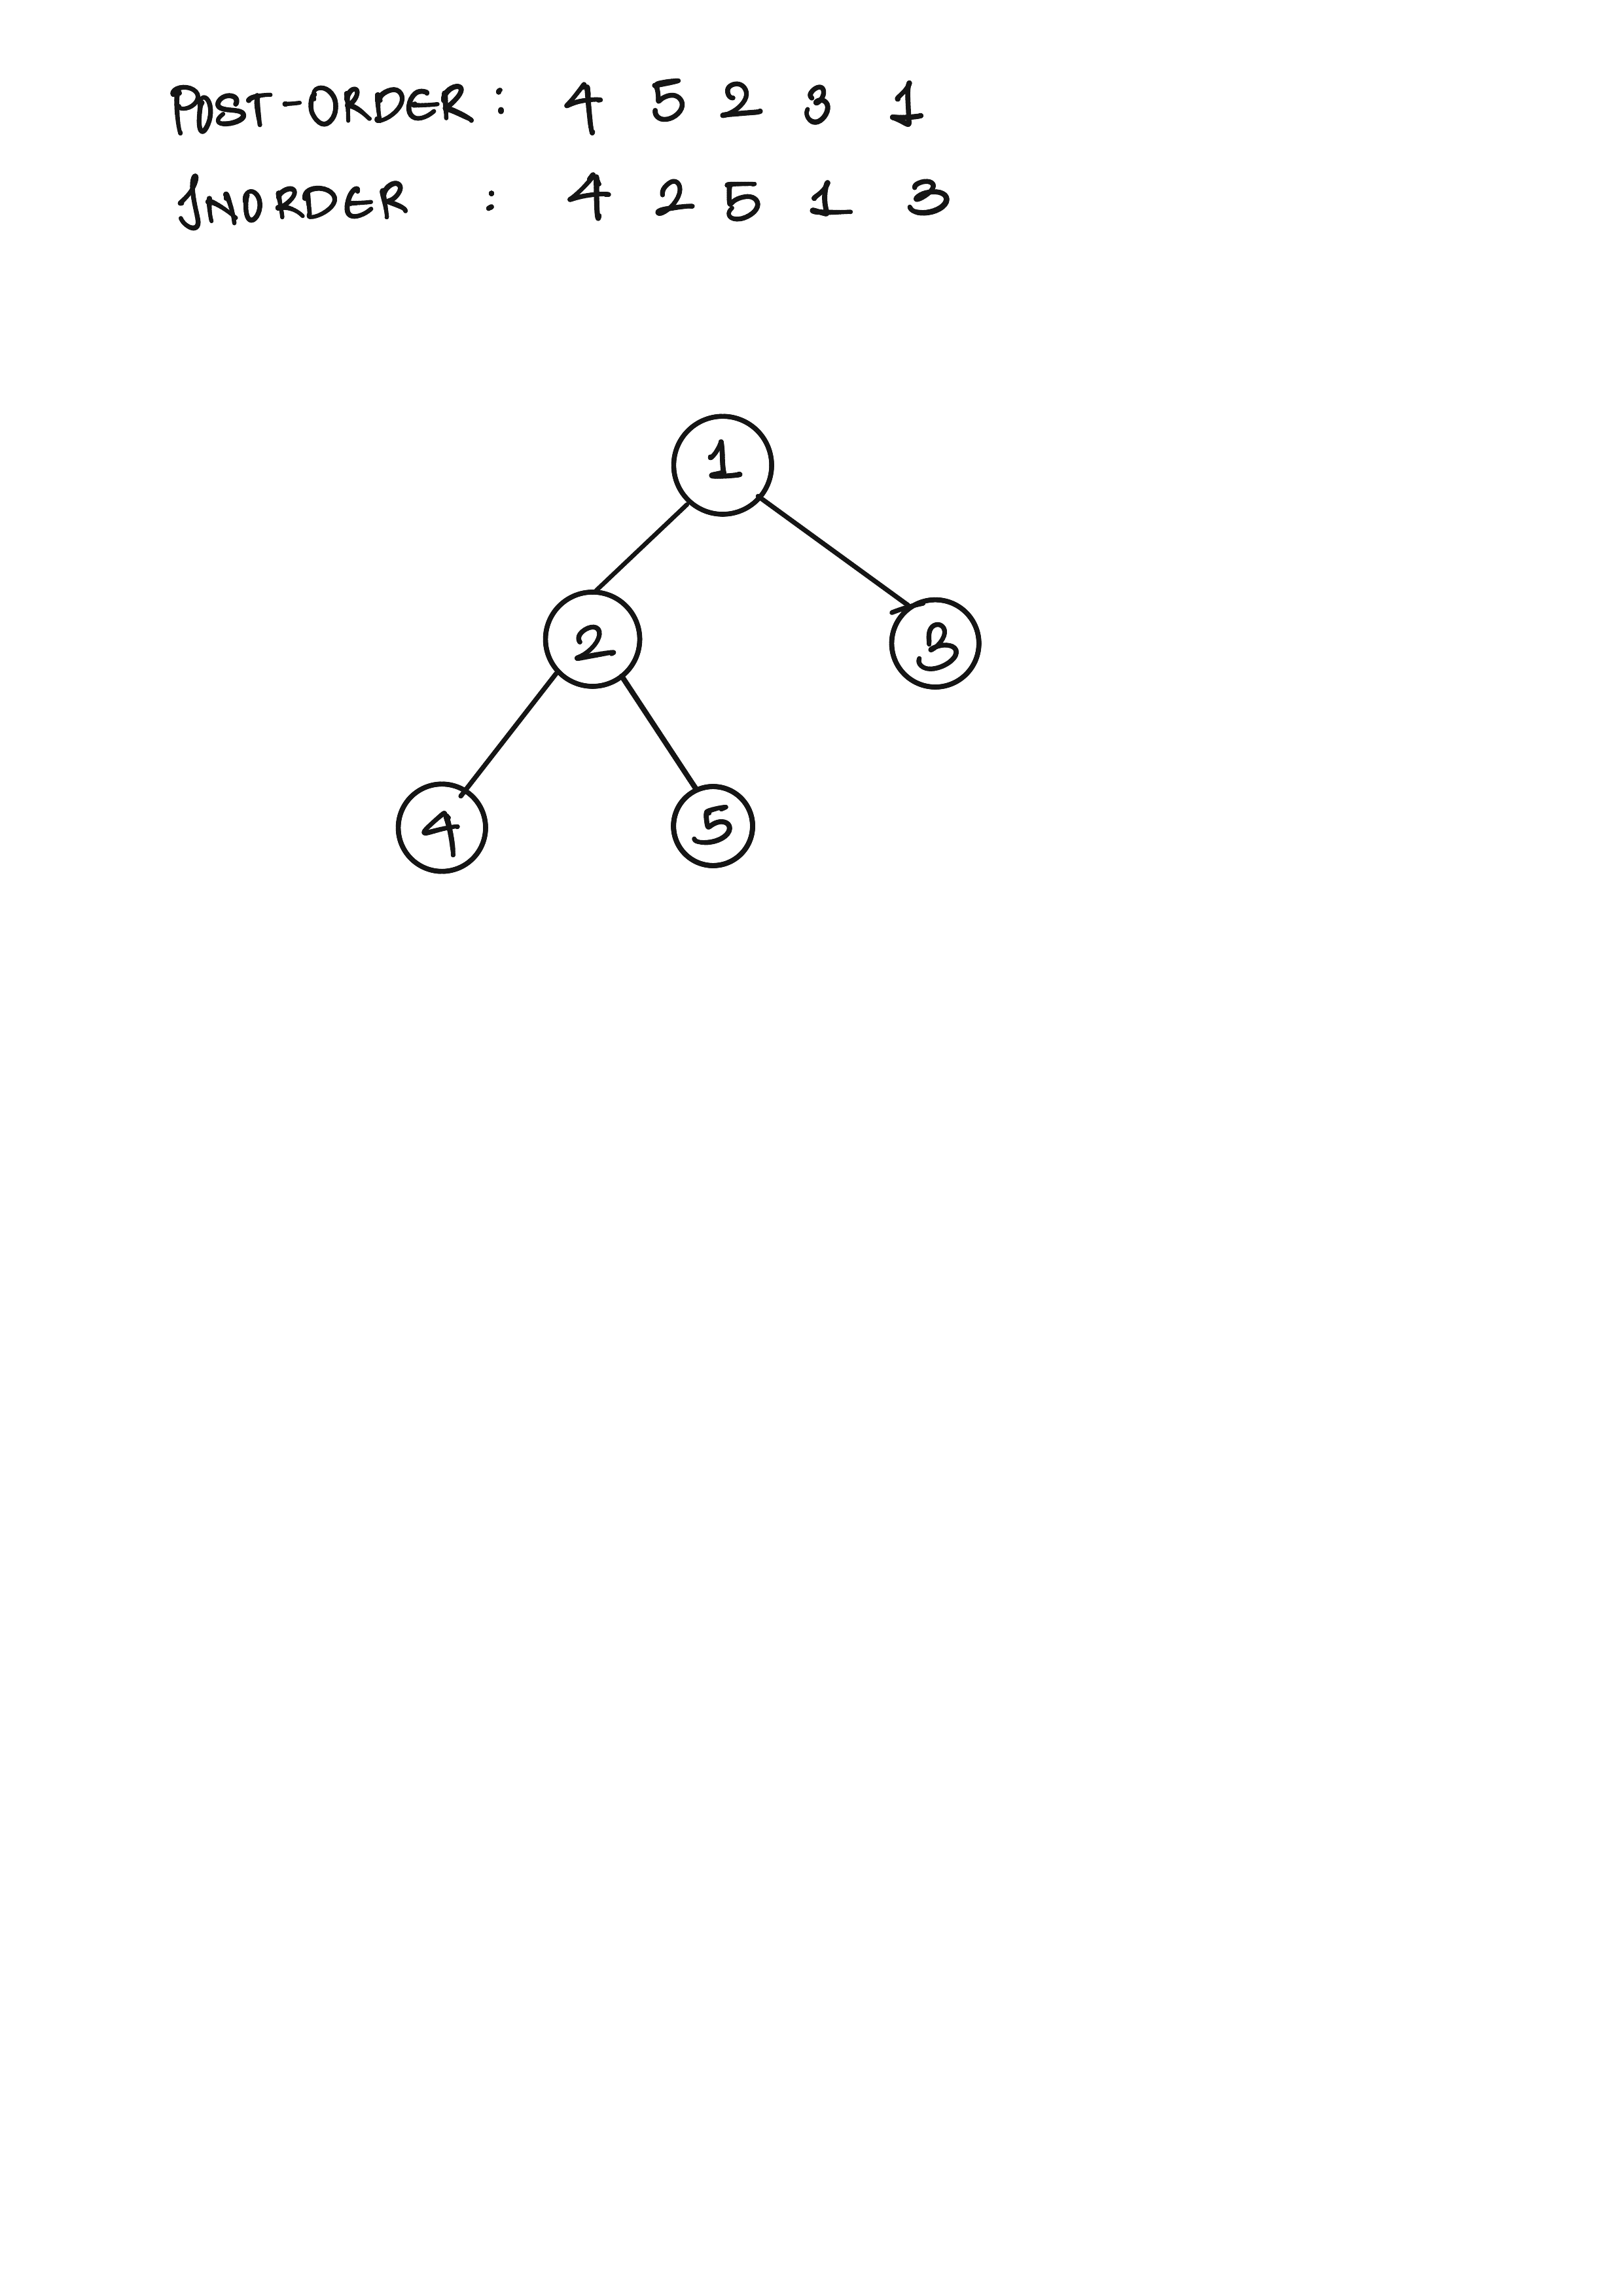 POST-ORDER: 4 5 2 3 1
INORDER : 4 2 5 1 3
1
2 3
4 5